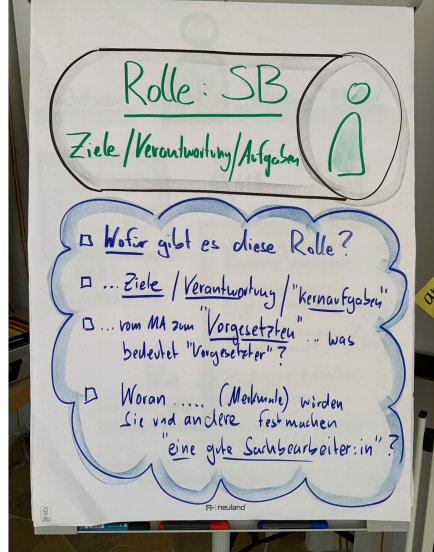 Rolle: SB
Ziele/Verantwortung/Aufgaben
Wofür gibt es diese Rolle?
... Ziele / Verantwortung / "Kernaufgaben"
... vom MA zum "Vorgesetzten" ... was
bedeutet "Vorgesetzter"?
Woran ..... (Merkmale) würden
Sie und andere festmachen
"eine gute Sachbearbeiter:in"?
neuland